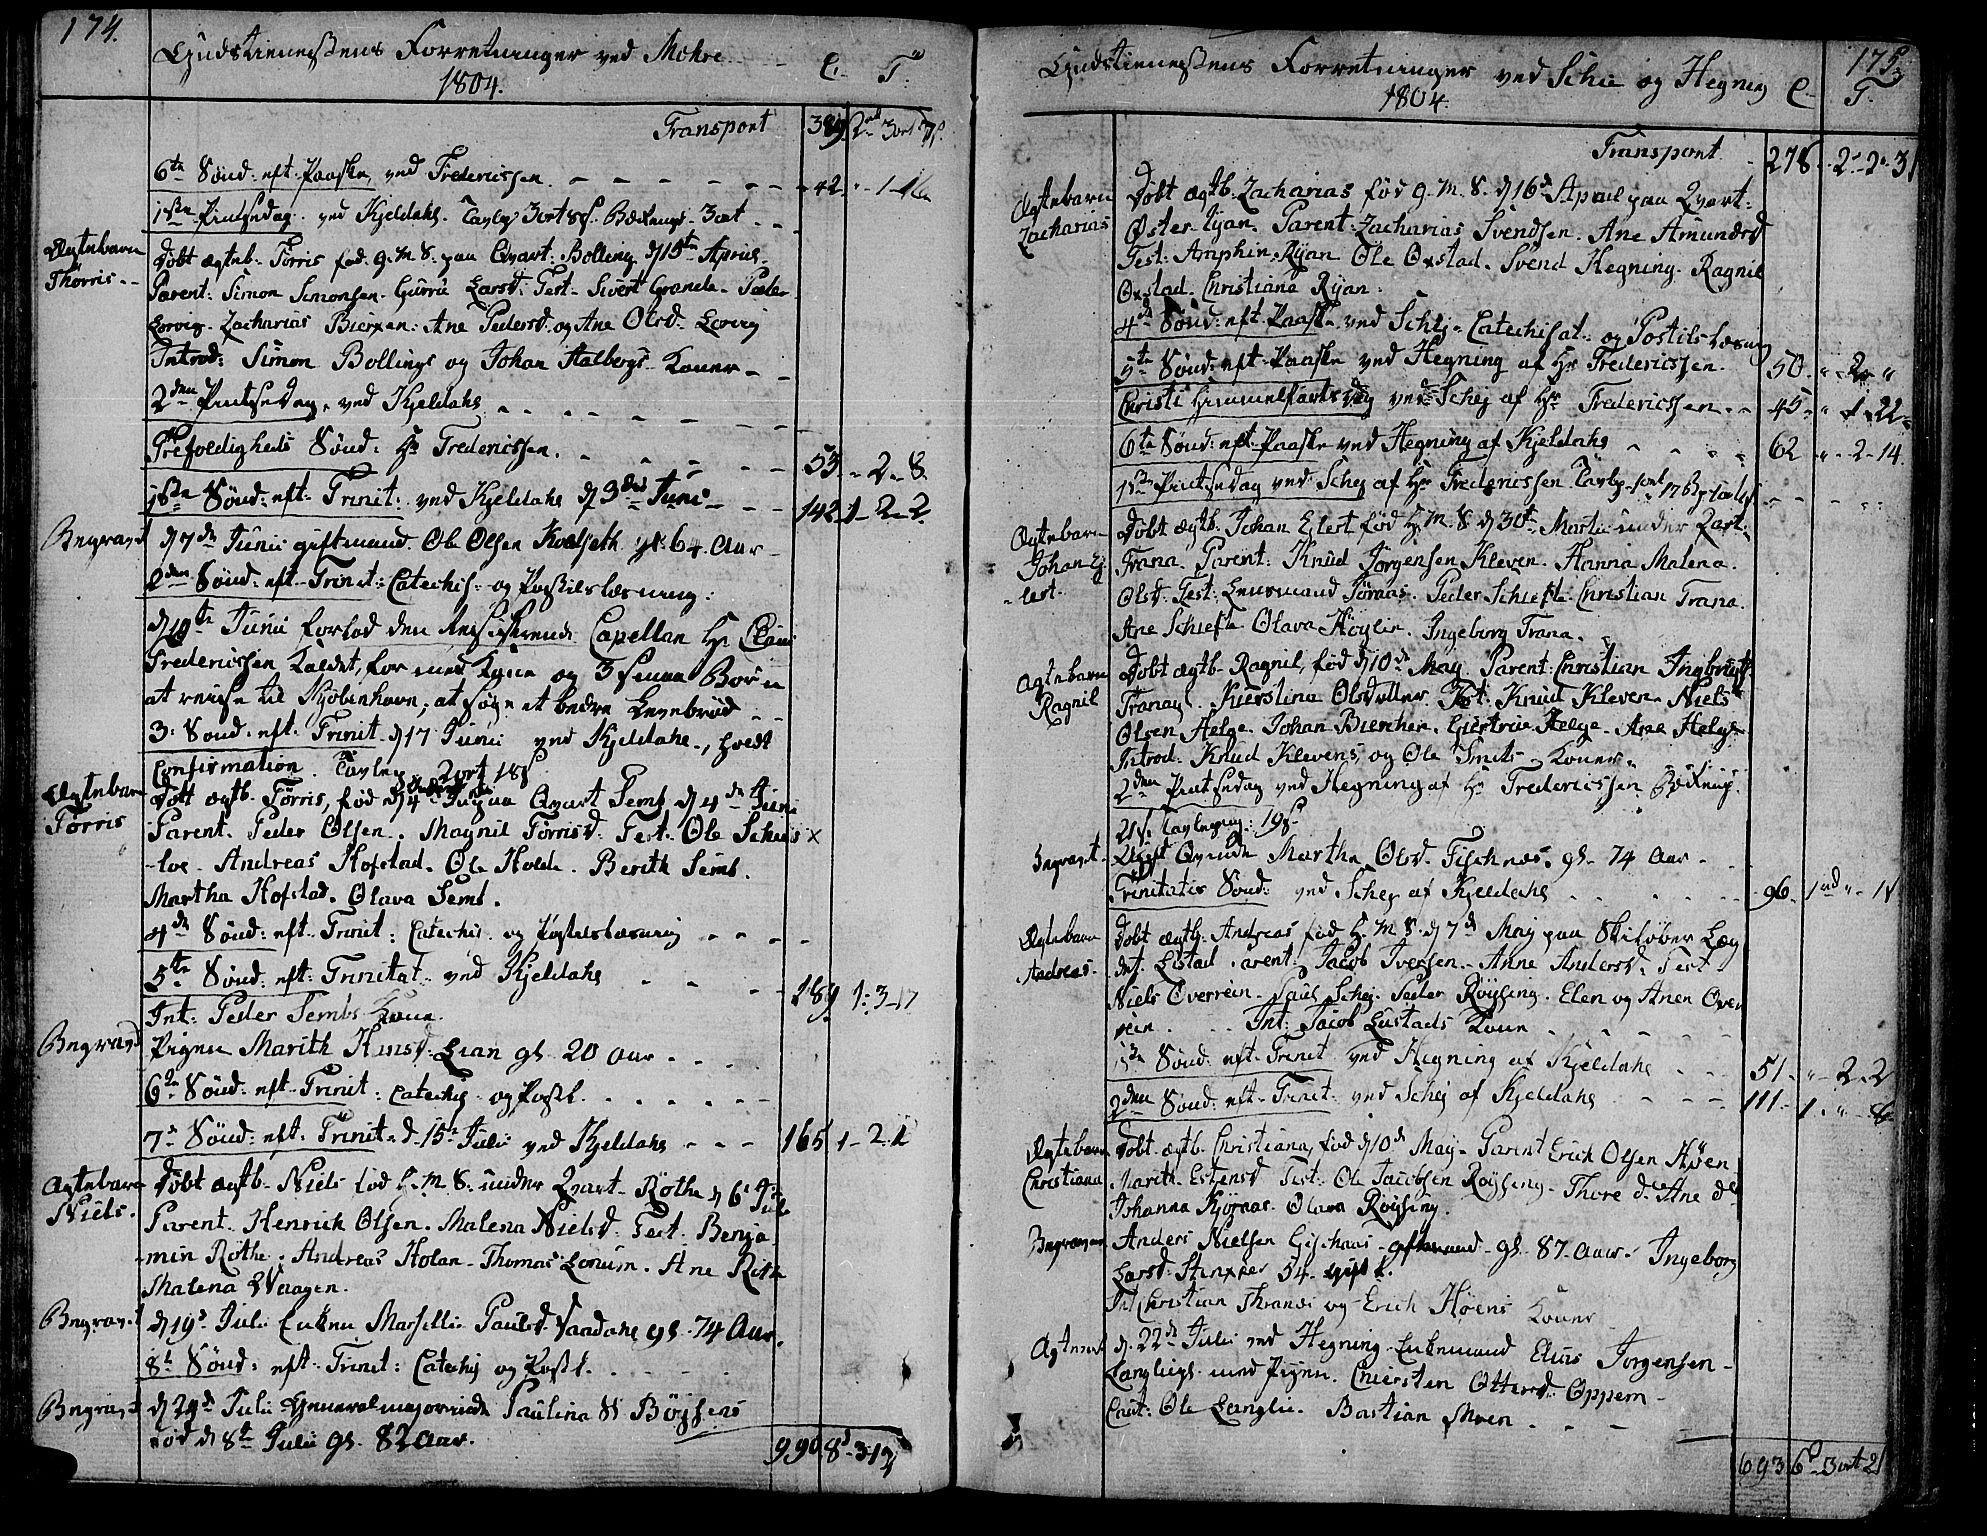 174.
Gudstienestens Forretninger ved Mohre
1804.
C. T.
Transport 389 2rd 3ort 7s.
6te Sönd: eft. Paaske, ved Fredericssen 42. 1-16
1ste Pintsedag. ved Kjeldahl. Tavlep 3ort 8s. Bækkenp. 3ort
Ægtebarn
Thørris
Döbt ægteb. Törris fød. 9. M. 8. paa Qvart: Bolling d 15te Aprill.
Parent: Simon Simonsen. Gurru Larsd: Test. Sivert Grande. Peder
Lorvig. Zacharias Bierxen: Ane Pedersd. og Ane Olsd. Lorvig
Introd: Simon Bollings og Johan Aalbergs Koner
2den Pintsedag, ved Kjeldahl
Trefoldigheds Sönd: Hr Fredericssen. 53. 2. 8
1ste Sönd: eft. Trinit: ved Kjeldahl d 3die Juni 142 1-2-2.
Begravet
d 7de Junii giftmand. Ole Olsen Kvelseth gl. 64 Aar
2den Sönd: eft. Trinit: Catechis. og Postilslæsning:
d 10te Junii forlod den Residerende Capellan Hr Claus
Fredericssen Kaldet, for med Kone og 3 smaa Börn
at reise til Kjöbenhavn, at søge et bedre Levebröd
3: Sönd. eft. Trinit. d 17 Junii ved Kjeldahl, holdt
Confirmation. Tavlep 2ort 18s
Ægtebarn
Törris
Döbt ægtb. Törris, fød d 4de Juni paa Qvart Semb, d 4de Juni
Parent. Peder Olsen. Magnil Törrisd. Test. Ole Schies x
-loe. Andreas Hofstad. Ole Holde. Berith Semb.
Martha Hofstad. Olava Semb.
4de Sönd: eft. Trinit: Catechis. og Postilslæsning
5te Sönd: eft: Trinitat: ved Kjeldahl 189 1-3-17
Int: Peder Sembs Kone.
Begravet
Pigen Marith Hansd: Lian gl. 20 Aar
6te Sönd: eft. Trinit: Catechis og Postl.
7de Sönd: eft. Trinit. d. 15de Juli ved Kjeldahl 165 1-2-1
Ægtebarn
Niels.
Döbt ægtb. Niels fød h. M. 8. under Qvart. Röthe d 6te Juli
Parent. Henrich Olsen. Malena Nielsd. Test. Benja
min Röthe. Andreas Holan. Thomas Lorum. Ane Röthe
Malena Waagen.
Begravet
d 19de Juli Enken Marselli Paulsd. Vaadahl gl. 74 Aar.
8de Sönd: eft. Trinit: Catechis og Postl.
Begravet
d 29de Julii Generalmajorinde Paulina W Böyssens
død d 8te Julii gl. 82 Aar.
990. 8d-3-12
175
Gudstienestens Forretninger ved Schei og Hegning
1804.
C T.
Transport 278. 2-2-31
Ægtebarn
Zacharias
Döbt ægtb. Zacharias fød 9. M. 8. d 16de April paa Qvart:
Øster Ryan. Parent: Zacharias Svendsen. Ane Amundsd
Test: Amphin Ryan Ole Oxstad. Svend Hegning. Ragnil
Oxstad. Christiana Ryan:
4de Sönd: eft. Paaske ved Schej. Catechisat. og Postils-læsning
5te Sönd: eft. Paaske ved Hegning af Hr Fredericssen. 50. " 2 "
Christi Himmelfarts Dag ved Schej af Hr Fredericssen. 45. " 1-22
6te Sönd: eft. Paaske ved Hegning af Kjeldahl 62 " 2-14.
1ste Pintsedag ved Schej af Hr Fredericssen
Ægtebarn
Johan Ej
-lert.
Döbt ægtb. Johan Elert fød h. M. 8 d 30te Martii under Qart:
Trana. Parent: Knud Jörgensen Kleven. Hanna Malena.
Olsd. Test: Lensmand Töraas. Peder Schiefte. Christian Trana.
Ane Schiefte. Olava Höylin. Ingeborg Trana.
Ægtebarn
Ragnil
Döbt ægtb. Ragnil, fød d 10de May Parent: Christian Ingbrigts
Tranaz. Kierstina Olsdatter. Test: Knud Kleven. Niels
Olsen Helge. Johan Bierchen. Giertrue Helge. Ane Helge
Introd. Knud Klevens, og Ole Smits Koner.
2den Pintsedag ved Hegning af Hr Fredericssen Bækkenp.
21s. Tavlepeng: 19s.
Begravet.
Gift Qvinde Martha Olsd. Fischnæs. gl. 74 Aar
Trinitatis Sönd: ved Schej af Kjeldahl 96. 1rd
Ægtebarn
Andreas.
Döbt ægtb. Andreas fød h. M. 8. d 7de Maj paa Skilöber Læg
det. Lystad. Parent: Jacob Iversen. Anne Andersd. Test
Niels Overrein. Paul Schej. Peder Röyssing. Elen og Anen Over
rein. Int: Jacob Lustads Kone
1ste Sönd: eft. Trinit ved Hegning af Kjeldahl 51. " 2-2
2den Sönd: eft. Trinit: ved Schej af Kjeldahl 111. 1. " 6
Ægtebarn
Christiana
Döbt ægtb. Christiana, fød d 10de May. Parent Erich Olsen Høen
Marith Estensd Test: Ole Jacobsen Röyssing. Thore do Ane do
Johanna Kjörnas. Olava Röyssing.
Begraven
Anders Nielsen Gischaas gftmand gl. 87 Aar. Ingeborg
Larsd: Stenxter 54. gift.
Int Christian Thranæs og Erich Höens Koner
Ægteviet
d. 22de Juli ved Hegning Enkemand Elias Jorgensen
Langliigs med Pigen Chiersten Ottersd. Oppem
Caut: Ole Langlie. Bastian Moen
693 6d 3ort 21